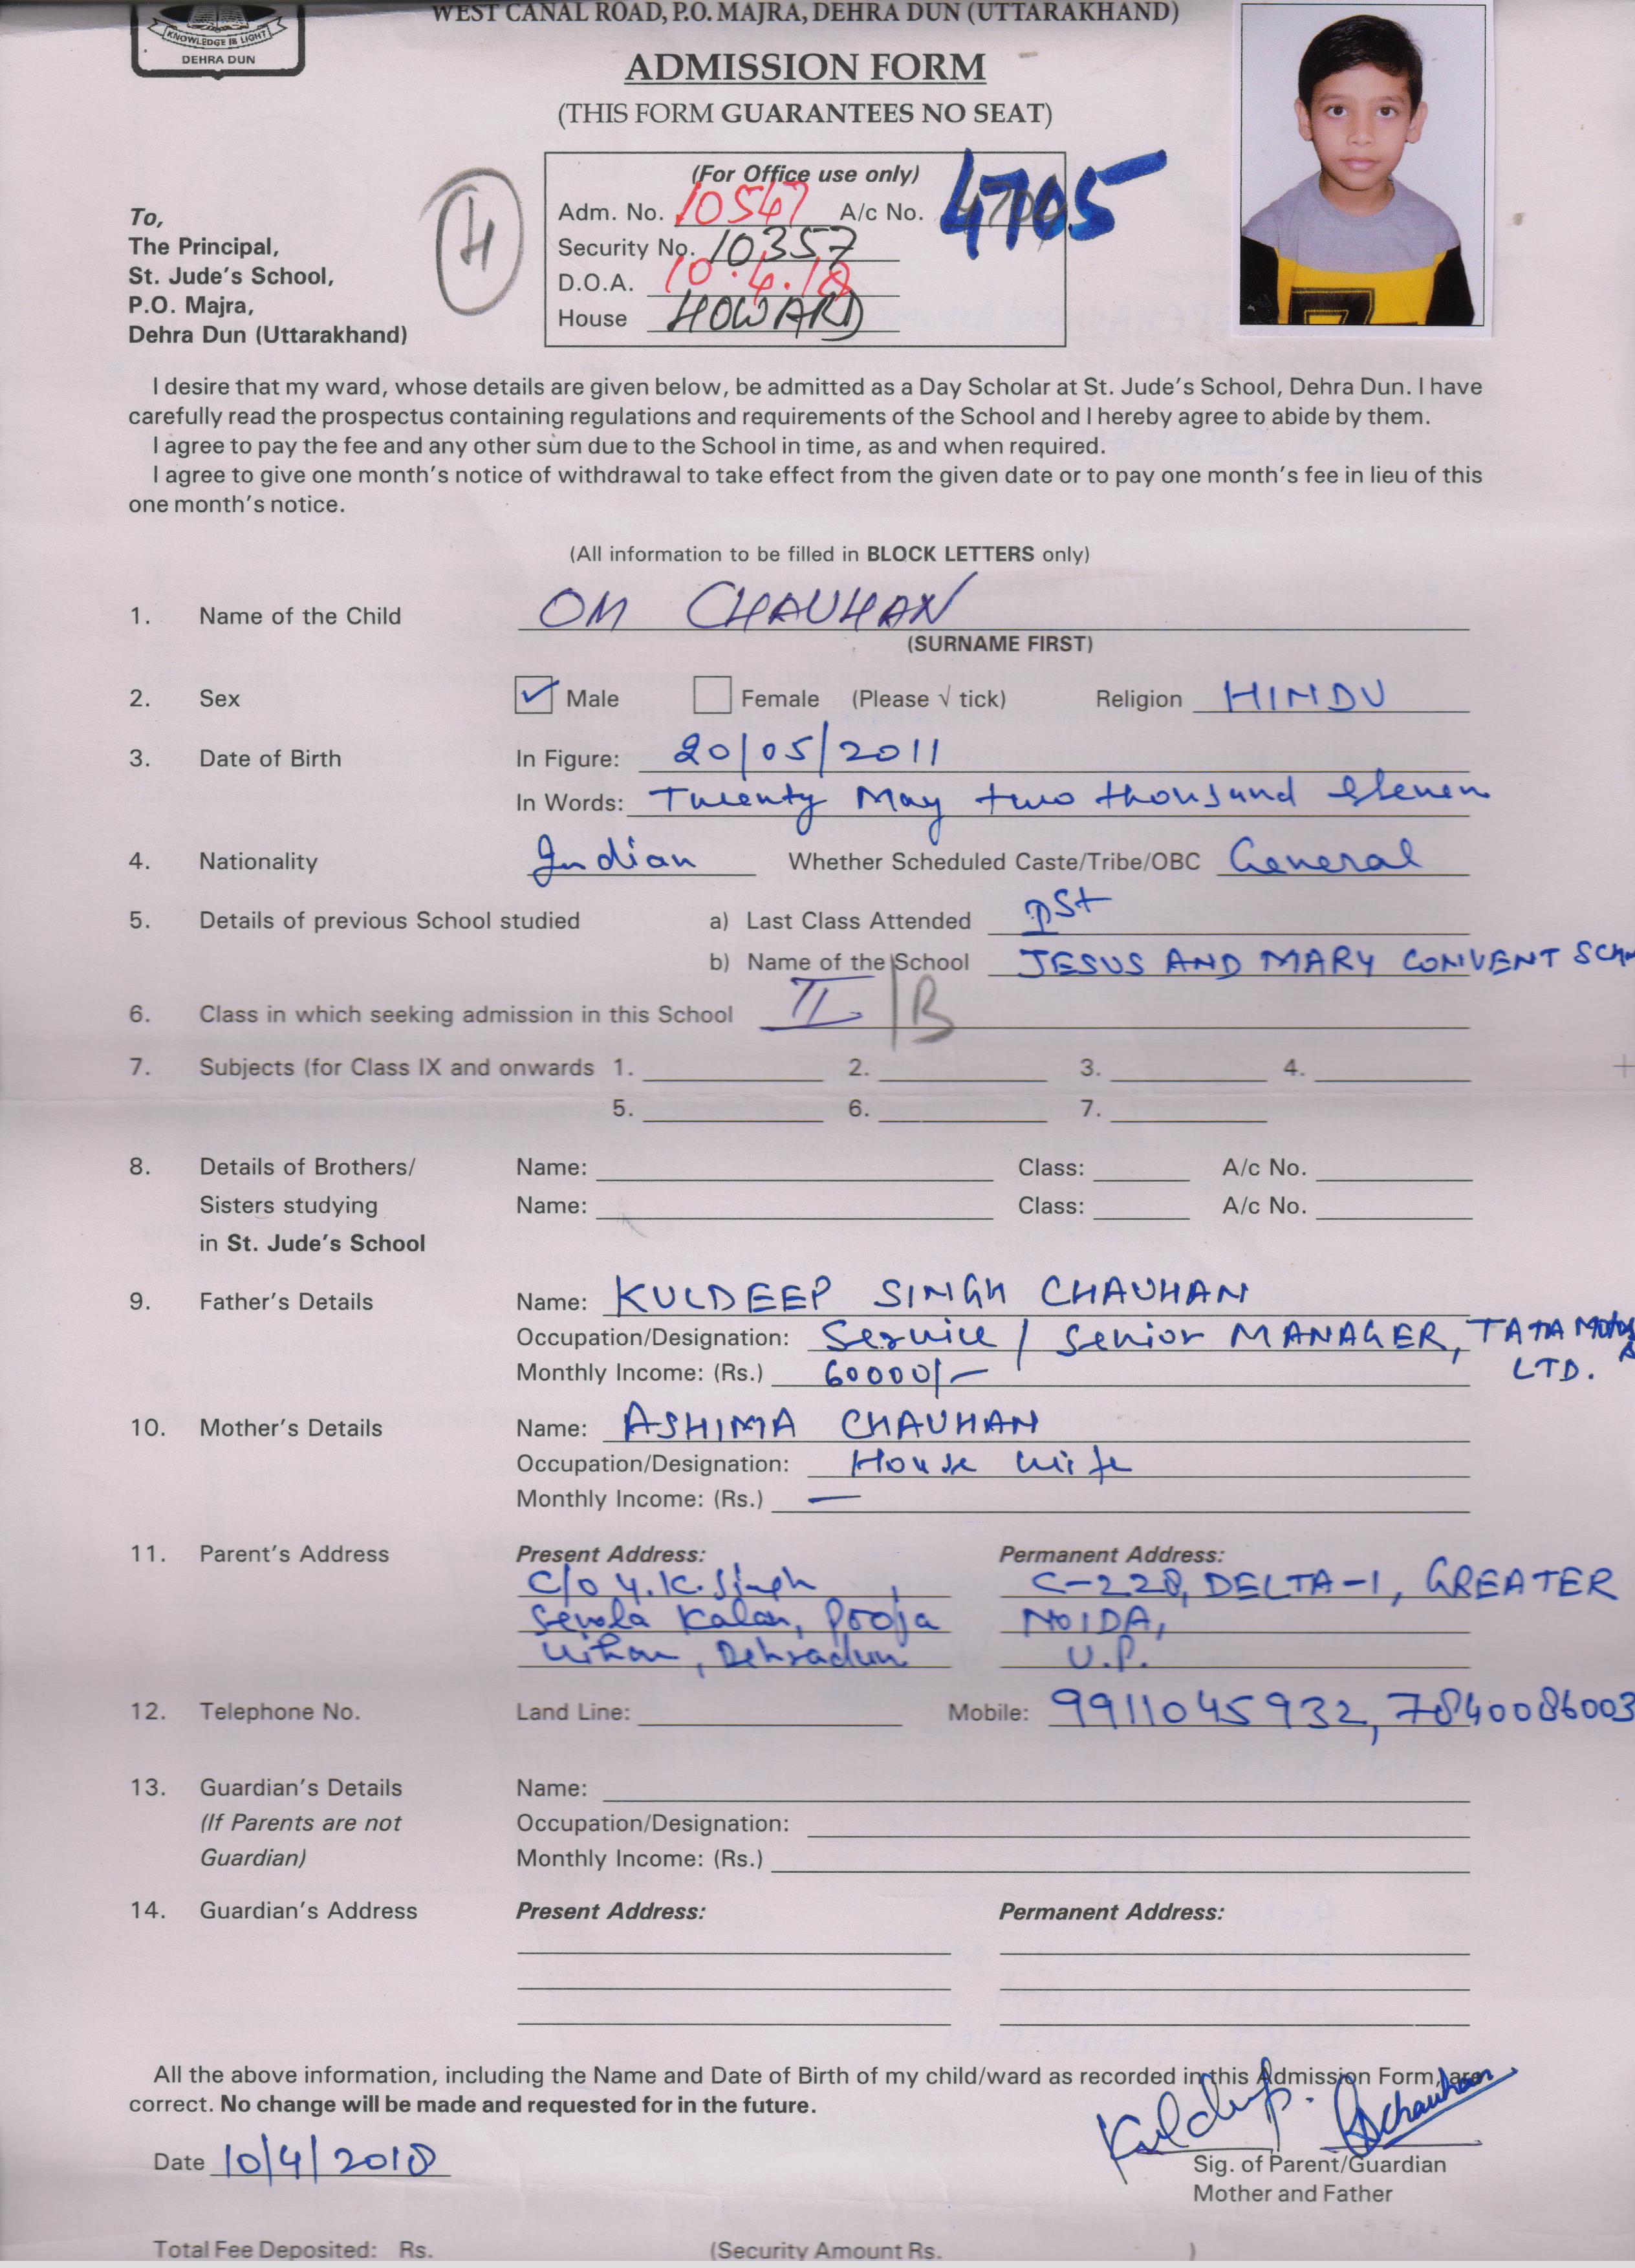 WEST CANAL ROAD, P.O. MAJRA, DEHRA DUN (UTTARAKHAND)
KNOWLEDGE IS LIGHT
DEHRA DUN
ADMISSION FORM
(THIS FORM GUARANTEES NO SEAT)
H
(For Office use only)
Adm. No. 10547 A/c No. 4705
Security No. 10357
D.O.A. 10.4.18
House HOWARD
To,
The Principal,
St. Jude's School,
P.O. Majra,
Dehra Dun (Uttarakhand)
I desire that my ward, whose details are given below, be admitted as a Day Scholar at St. Jude's School, Dehra Dun. I have
carefully read the prospectus containing regulations and requirements of the School and I hereby agree to abide by them.
I agree to pay the fee and any other sum due to the School in time, as and when required.
I agree to give one month's notice of withdrawal to take effect from the given date or to pay one month's fee in lieu of this
one month's notice.
(All information to be filled in BLOCK LETTERS only)
1. Name of the Child OM CHAUHAN
(SURNAME FIRST)
2. Sex Male Female (Please √ tick) Religion HINDU
3. Date of Birth In Figure: 20/05/2011
In Words: Twenty May two thousand Eleven
4. Nationality Indian Whether Scheduled Caste/Tribe/OBC General
5. Details of previous School studied a) Last Class Attended Ist
b) Name of the School JESUS AND MARY CONVENT SCH
6. Class in which seeking admission in this School II/B
7. Subjects (for Class IX and onwards 1. 2. 3. 4.
5. 6. 7.
8. Details of Brothers/ Name: Class: A/c No.
Sisters studying Name: Class: A/c No.
in St. Jude's School
9. Father's Details Name: KULDEEP SINGH CHAUHAN
Occupation/Designation: Service / Senior MANAGER, TATA Motors
Monthly Income: (Rs.) 60000/- LTD.
10. Mother's Details Name: ASHIMA CHAUHAN
Occupation/Designation: House wife
Monthly Income: (Rs.) —
11. Parent's Address Present Address: Permanent Address:
C/o Y.K. Singh, C-228, DELTA-1, GREATER
Sewla Kalan, Pooja NOIDA,
Vihar, Dehradun U.P.
12. Telephone No. Land Line: Mobile: 9911045932, 7840086003
13. Guardian's Details Name:
(If Parents are not Occupation/Designation:
Guardian) Monthly Income: (Rs.)
14. Guardian's Address Present Address: Permanent Address:
All the above information, including the Name and Date of Birth of my child/ward as recorded in this Admission Form, are
correct. No change will be made and requested for in the future.
Kuldeep. Achauhan
Date 10/4/2018
Sig. of Parent/Guardian
Mother and Father
Total Fee Deposited: Rs. (Security Amount Rs. )